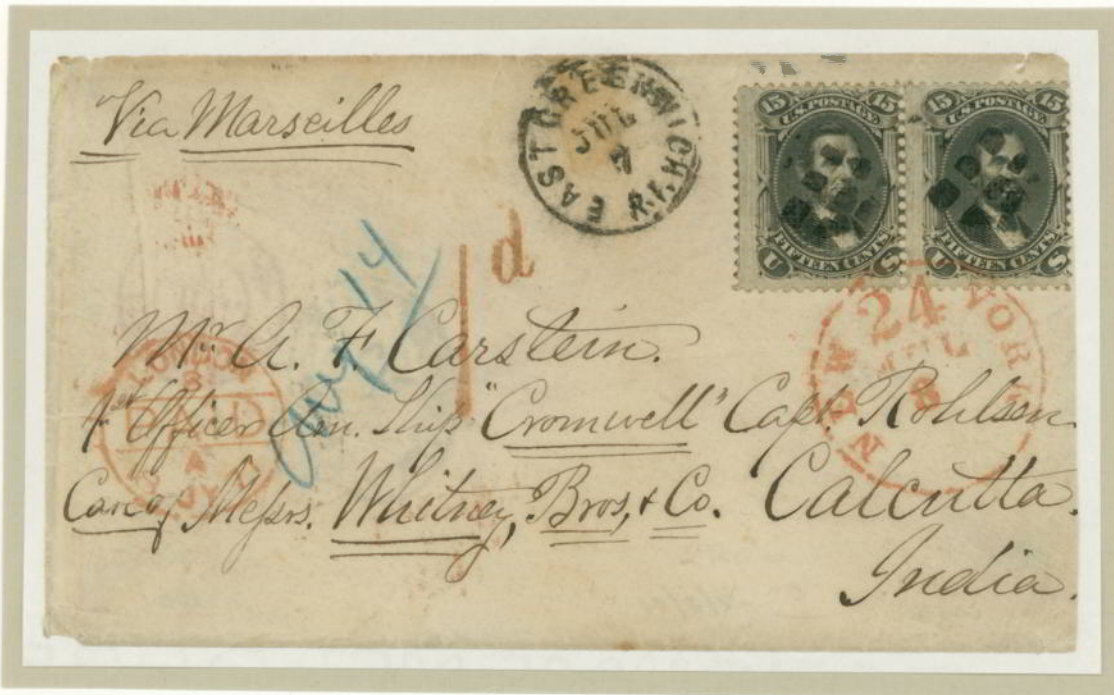 Via Marseilles
EAST GREENWICH R.I.
JUL
7
15 U.S. POSTAGE 15
U FIFTEEN CENTS S
15 U.S. POSTAGE 15
U FIFTEEN CENTS S
1d
Aug 14
NEW YORK
24
JUL
8
LONDON
PAID
Mr. A. F. Carstein.
1st Officer Am. Ship "Cromwell" Capt. Rohlsen
Care of Messrs. Whitney, Bros, & Co. Calcutta.
India.